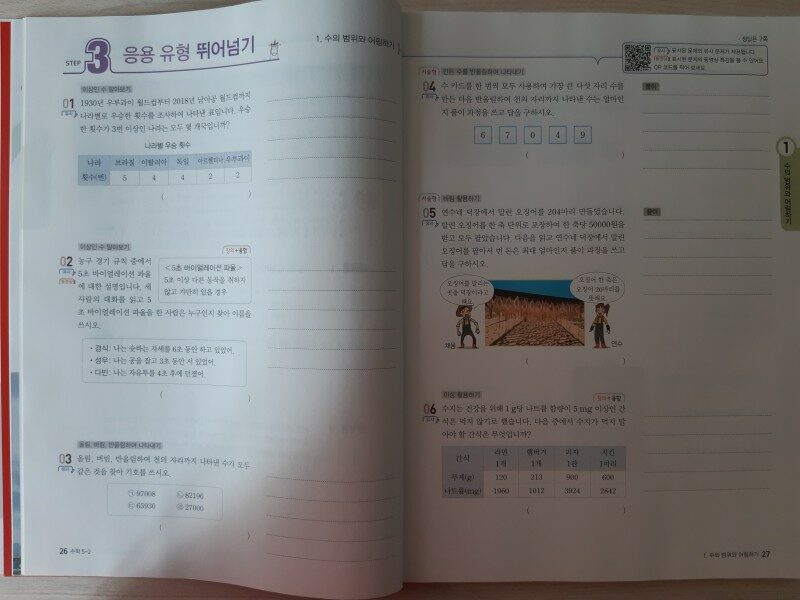 STEP 3 응용 유형 뛰어넘기
1. 수의 범위와 어림하기
이상인 수 알아보기
01 1930년 우루과이 월드컵부터 2018년 남아공 월드컵까지
유사
나라별로 우승한 횟수를 조사하여 나타낸 표입니다. 우승
한 횟수가 3번 이상인 나라는 모두 몇 개국입니까?
나라별 우승 횟수
나라 브라질 이탈리아 독일 아르헨티나 우루과이
횟수(번) 5 4 4 2 2
( )
이상인 수 알아보기
창의+융합
02 농구 경기 규칙 중에서
유사
5초 바이얼레이션 파울
에 대한 설명입니다. 세
사람의 대화를 읽고 5
초 바이얼레이션 파울을 한 사람은 누구인지 찾아 이름을
쓰시오.
<5초 바이얼레이션 파울>
5초 이상 다른 동작을 취하지
않고 가만히 있을 경우
• 경식: 나는 슛하는 자세를 6초 동안 하고 있었어.
• 성우: 나는 공을 잡고 3초 동안 서 있었어.
• 다빈: 나는 자유투를 4초 후에 던졌어.
( )
올림, 버림, 반올림하여 나타내기
03 올림, 버림, 반올림하여 천의 자리까지 나타낸 수가 모두
유사
같은 것을 찾아 기호를 쓰시오.
㉠ 97008 ㉡ 82196
㉢ 65930 ㉣ 27000
( )
26 수학 5-2
정답은 7쪽
유사 표시된 문제의 유사 문제가 제공됩니다.
표시된 문제의 동영상 특강을 볼 수 있어요.
QR 코드를 찍어 보세요.
서술형 만든 수를 반올림하여 나타내기
04 수 카드를 한 번씩 모두 사용하여 가장 큰 다섯 자리 수를
유사
만든 다음 반올림하여 천의 자리까지 나타낸 수는 얼마인
지 풀이 과정을 쓰고 답을 구하시오.
6 7 0 4 9
( )
풀이
서술형 버림 활용하기
05 연수네 덕장에서 말린 오징어를 204마리 만들었습니다.
유사
말린 오징어를 한 축 단위로 포장하여 한 축당 50000원을
받고 모두 팔았습니다. 다음을 읽고 연수네 덕장에서 말린
오징어를 팔아서 번 돈은 최대 얼마인지 풀이 과정을 쓰고
답을 구하시오.
오징어를 말리는
곳을 덕장이라고
해요.
오징어 한 축은
오징어 20마리를
뜻해요.
채용
연수
( )
풀이
이상 활용하기
창의+융합
06 수지는 건강을 위해 1 g당 나트륨 함량이 5 mg 이상인 간
유사
식은 먹지 않기로 했습니다. 다음 중에서 수지가 먹지 말
아야 할 간식은 무엇입니까?
간식 라면 1개 햄버거 1개 피자 1판 치킨 1마리
무게(g) 120 213 900 600
나트륨(mg) 1960 1012 3924 2842
( )
1
수의 범위와 어림하기
1. 수의 범위와 어림하기 27